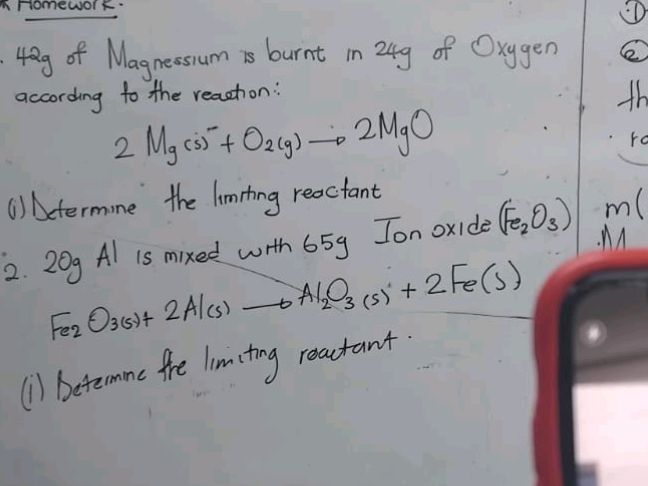 Homework.
. 42g of Magnessium is burnt in 24g of Oxygen
according to the reaction:
2 Mg(s) + O2(g) → 2MgO
(i) Determine the limiting reactant
2. 20g Al is mixed with 65g Ion oxide (Fe2O3)
Fe2O3(s) + 2Al(s) → Al2O3(s) + 2Fe(s)
(i) Determine the limiting reactant.
①
②
th
m(